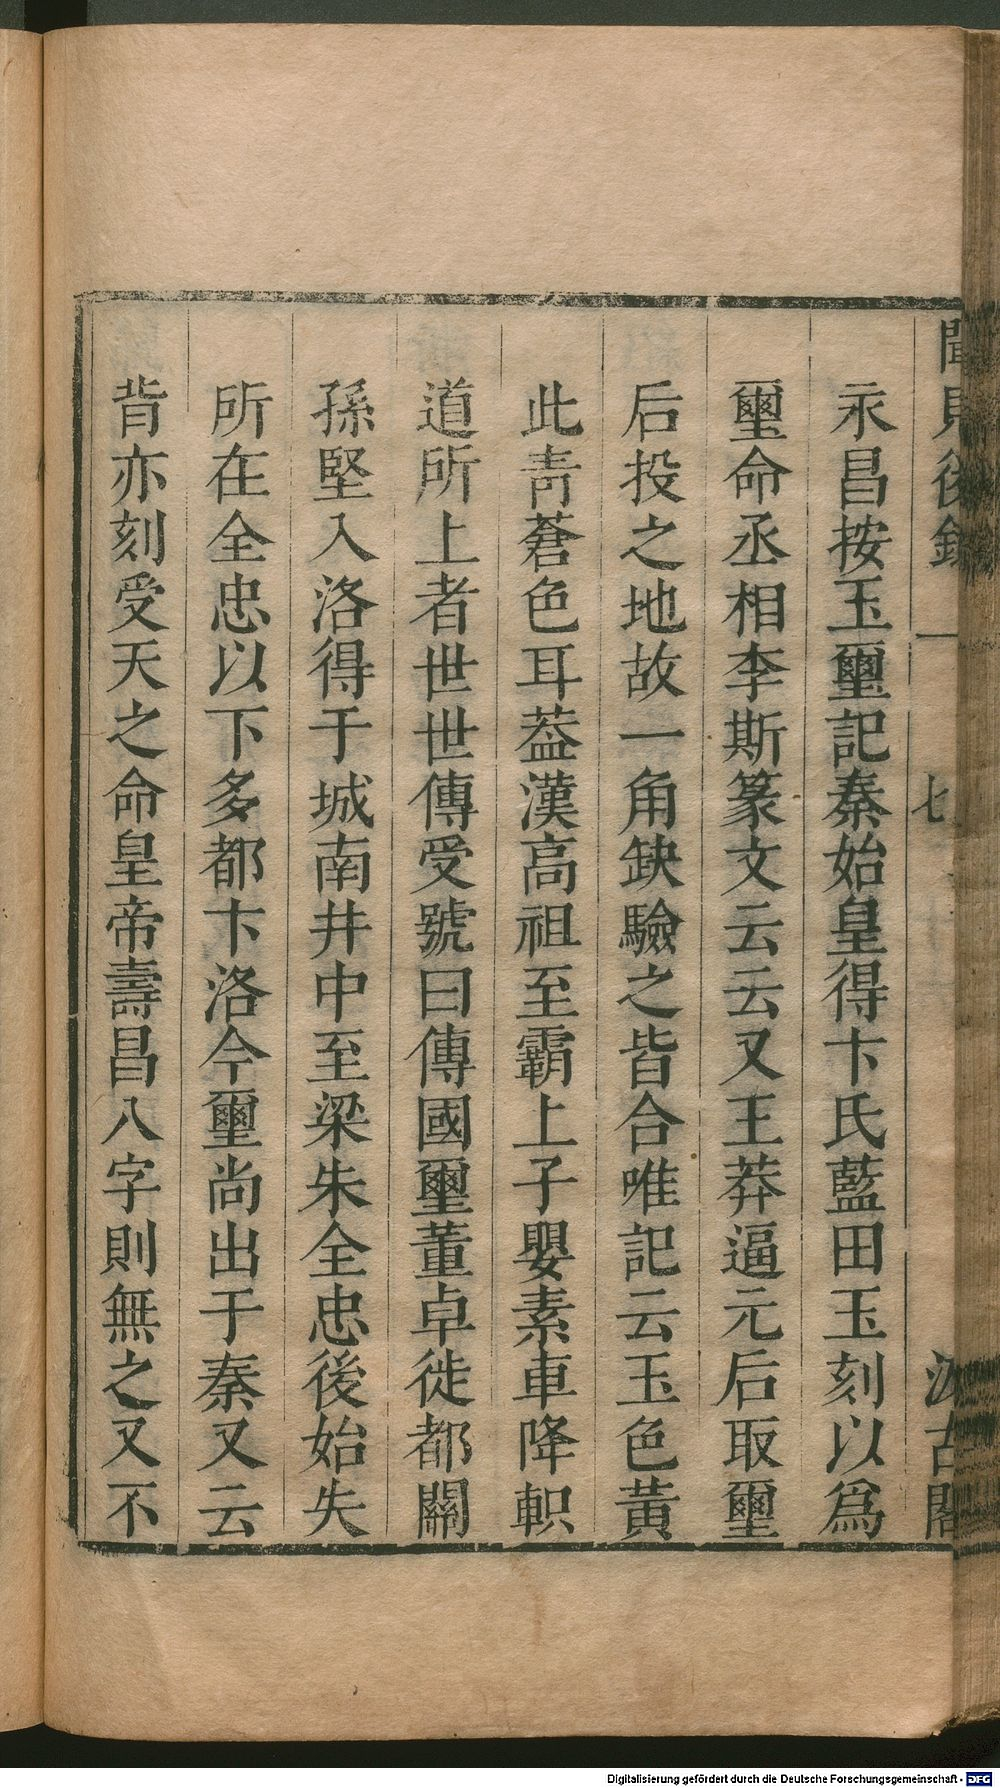 聞見後錄 一 七 汲古閣
永昌按玉璽記秦始皇得卞氏藍田玉刻以爲
璽命丞相李斯篆文云云又王莽逼元后取璽
后投之地故一角缺驗之皆合唯記云玉色黃
此青蒼色耳葢漢高祖至霸上子嬰素車降軹
道所上者世世傳受號曰傳國璽董卓徙都關
孫堅入洛得于城南井中至梁朱全忠後始失
所在全忠以下多都卞洛今璽尚出于秦又云
背亦刻受天之命皇帝壽昌八字則無之又不
Digitalisierung gefördert durch die Deutsche Forschungsgemeinschaft - DFG